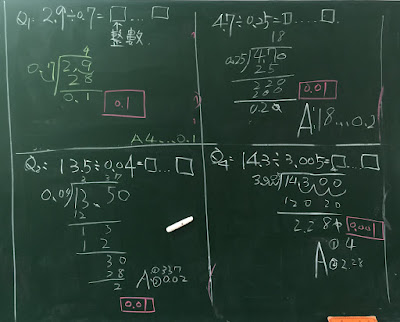 Q1: 2.9÷0.7=□…□
整數
4
0.7 2.9
2 8
0.1
0.1
A4…0.1
4.7÷0.25=□…□.
18
0.25 4.70
2 5
2 2 0
2 0 0
0.2 0
0.01
A:18…0.2
Q3: 13.5÷0.04=□…□
3 3 7
0.04 13.50
12
1 5
1 2
3 0
2 8
2
A ①337
②0.02
0.01
Q4: 14.3÷3.005=□…□
14.300
12 0 20
2.28
0.001
A ① 4
② 2.28